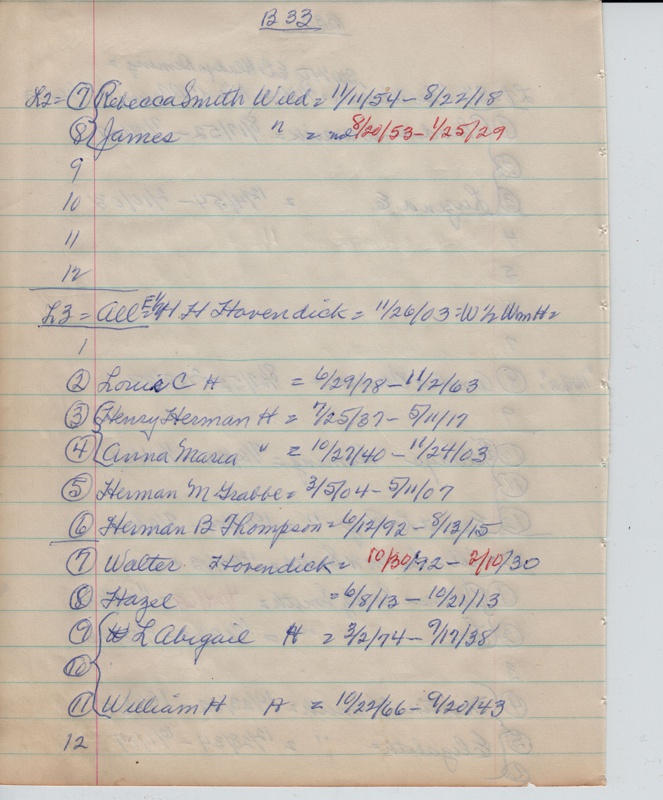 B 33
L2 = 7 Rebecca Smith Wild = 11/11/54 - 8/22/18
8 James " = 8/20/53 - 1/25/29
9
10
11
12
L3 = All E½ H H Hovendick = 11/26/03 = W ½ Wm H =
1
2 Louis C H = 6/29/78 - 11/2/63
3 Henry Herman H = 7/25/37 - 5/11/17
4 Anna Maria " = 10/27/40 - 11/24/03
5 Herman M Grabbe = 3/5/04 - 5/11/07
6 Herman B Thompson = 6/12/92 - 8/13/15
7 Walter Hovendick = 10/30/92 - 2/10/30
8 Hazel = 6/8/13 - 10/21/13
9 L Abigail H = 3/2/74 - 9/17/38
10
11 William H H = 10/22/66 - 9/20/43
12